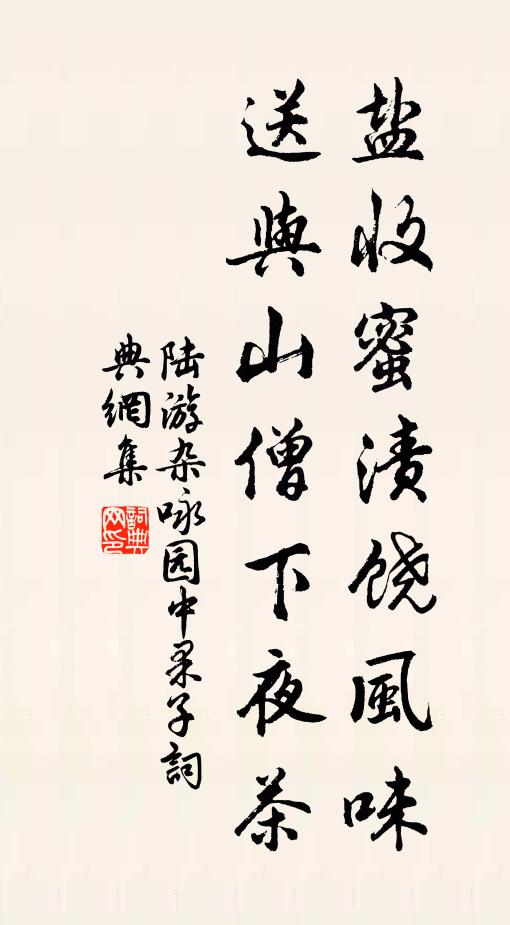 盐收蜜渍饶風味
送與山僧下夜茶
陆游杂咏园中果子詞
典網集
詞典
网印